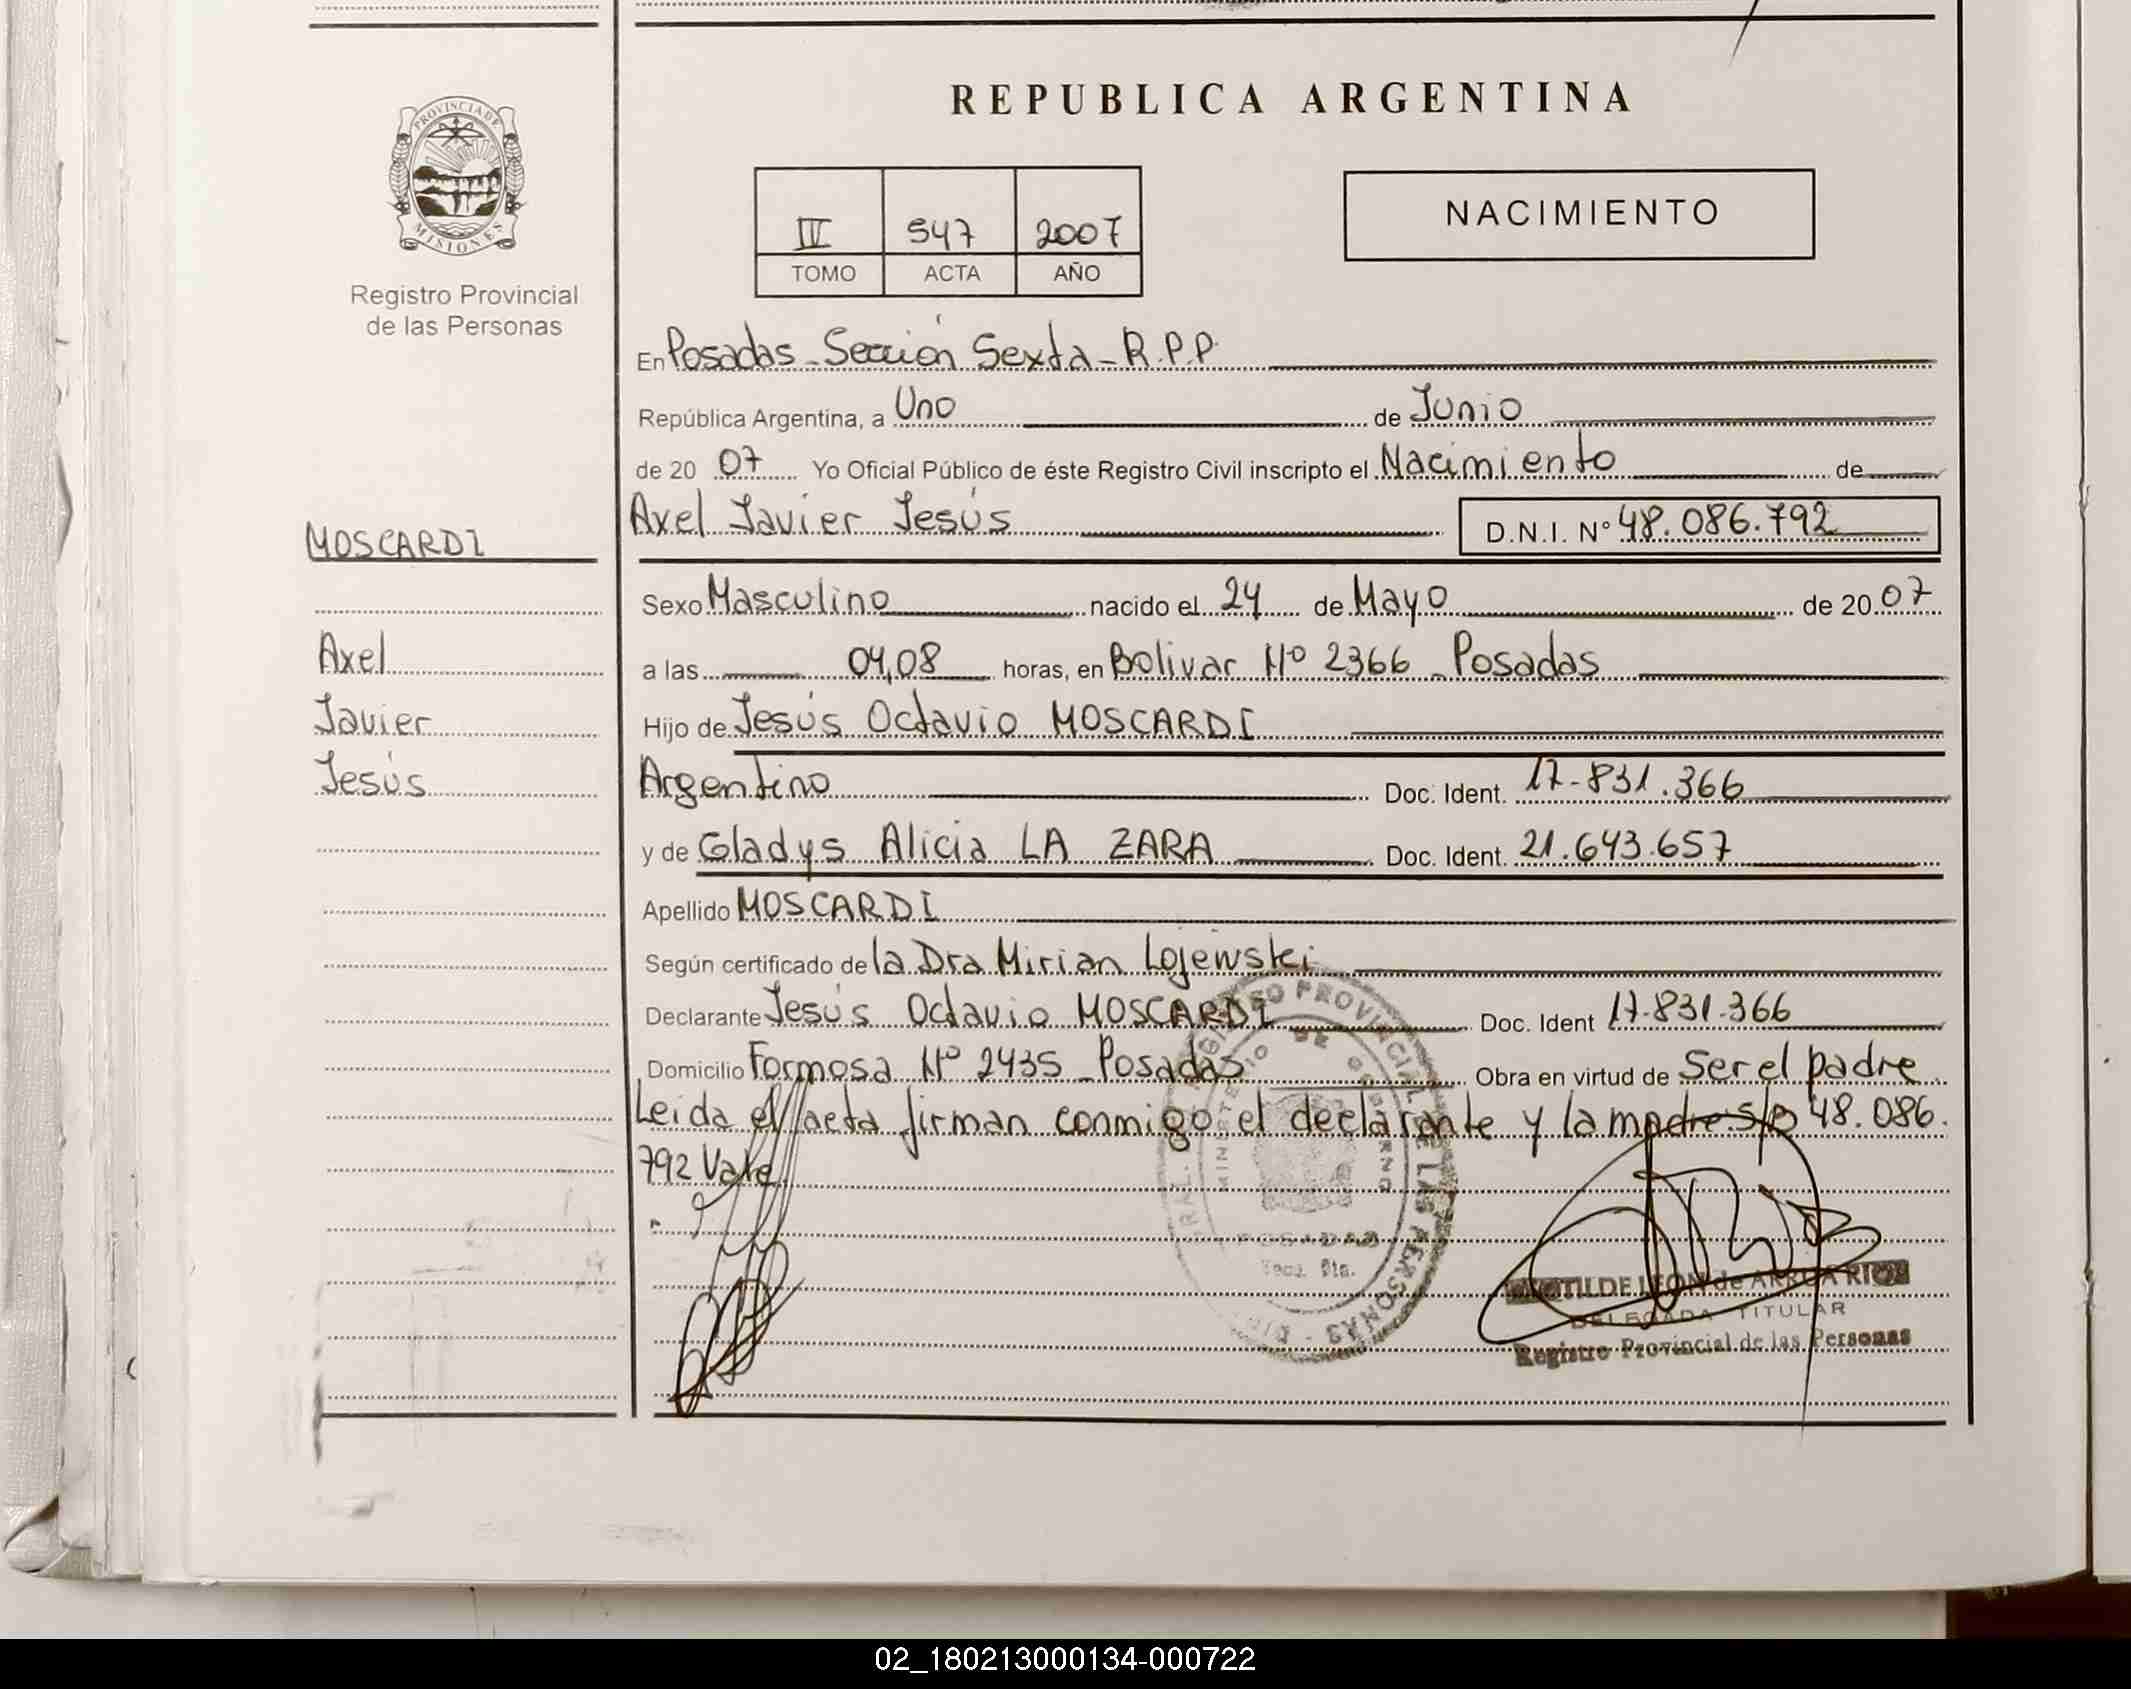 REPUBLICA ARGENTINA
PROVINCIA DE
MISIONES
Registro Provincial
de las Personas
IV 547 2007
TOMO ACTA AÑO
NACIMIENTO
En Posadas - Sección Sexta - R.P.P.
República Argentina, a Uno de Junio
de 20 07 Yo Oficial Público de éste Registro Civil inscripto el Nacimiento de
MOSCARDI
Axel Javier Jesús D.N.I. Nº 48.086.792
Sexo Masculino nacido el 24 de Mayo de 20 07
Axel
a las 04,08 horas, en Bolivar Nº 2366 - Posadas
Javier
Hijo de Jesús Octavio MOSCARDI
Jesús
Argentino Doc. Ident. 17-831.366
y de Gladys Alicia LA ZARA Doc. Ident. 21.643.657
Apellido MOSCARDI
Según certificado de la Dra Mirian Lojewski
Declarante Jesús Octavio MOSCARDI Doc. Ident 17-831-366
Domicilio Formosa Nº 2435 - Posadas Obra en virtud de Ser el padre
Leida el acta firman conmigo el declarante y la madre s/b 48.086.
792 Vale
REGISTRO PROVINCIAL DE LAS PERSONAS
MINISTERIO DE GOBIERNO
POSADAS
LEON de ARRUA RIOS
DELEGADA TITULAR
Registro Provincial de las Personas
02_180213000134-000722